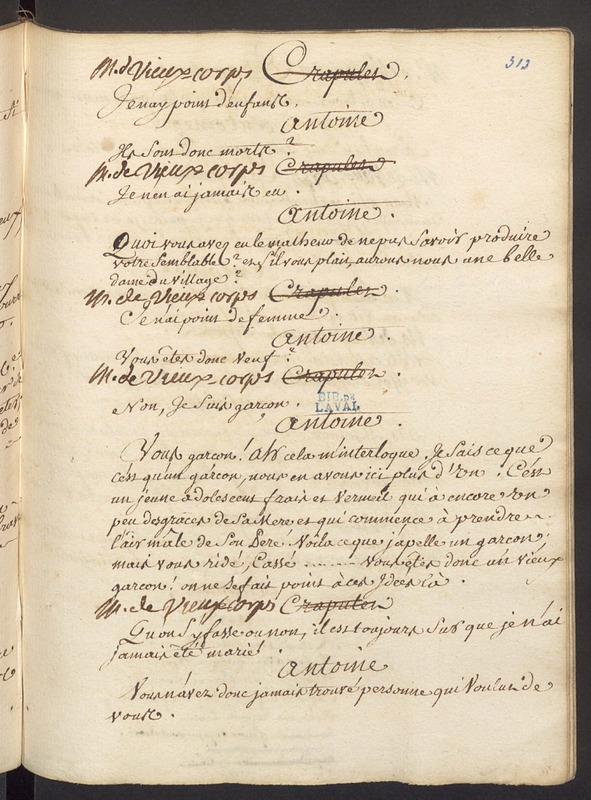 313
M. de Vieux corps Crapulet.
Je nay point d'enfans.
Antoine
Ils sont donc morts ?
M. de Vieux corps Crapulet
Je n'en ai jamais eu.
Antoine.
Quoi vous avez eu le malheur de ne pas savoir produire
votre semblable ? et, s'il vous plait, aurons nous une belle
dame du village ?
M. de Vieux corps Crapulet.
Je n'ai point de femme.
Antoine.
Vous êtes donc veuf ?
M. de Vieux corps Crapulet.
Non, Je suis garçon.
BIB. DE
LAVAL
Antoine.
Vous garçon ! ah cela m'interloque. Je sais ce que
c'est qu'un garçon, nous en avons ici plus d'un. C'est
un jeune adolescent frais et vermeil qui à encore un
peu des graces de sa Mere et qui commence à prendre
l'air mâle de son Pere. Voila ce que j'apelle un garçon;
mais vous ridé, Cassé ........ vous êtes donc un vieux
garçon ! on ne se fait point à ces Idées là.
M. de Vieux corps Crapulet
Qu'on s'y fasse ou non, il est toujours sur que je n'ai
jamais été marié.
Antoine
Vous n'avez donc jamais trouvé personne qui voulut de
vous.